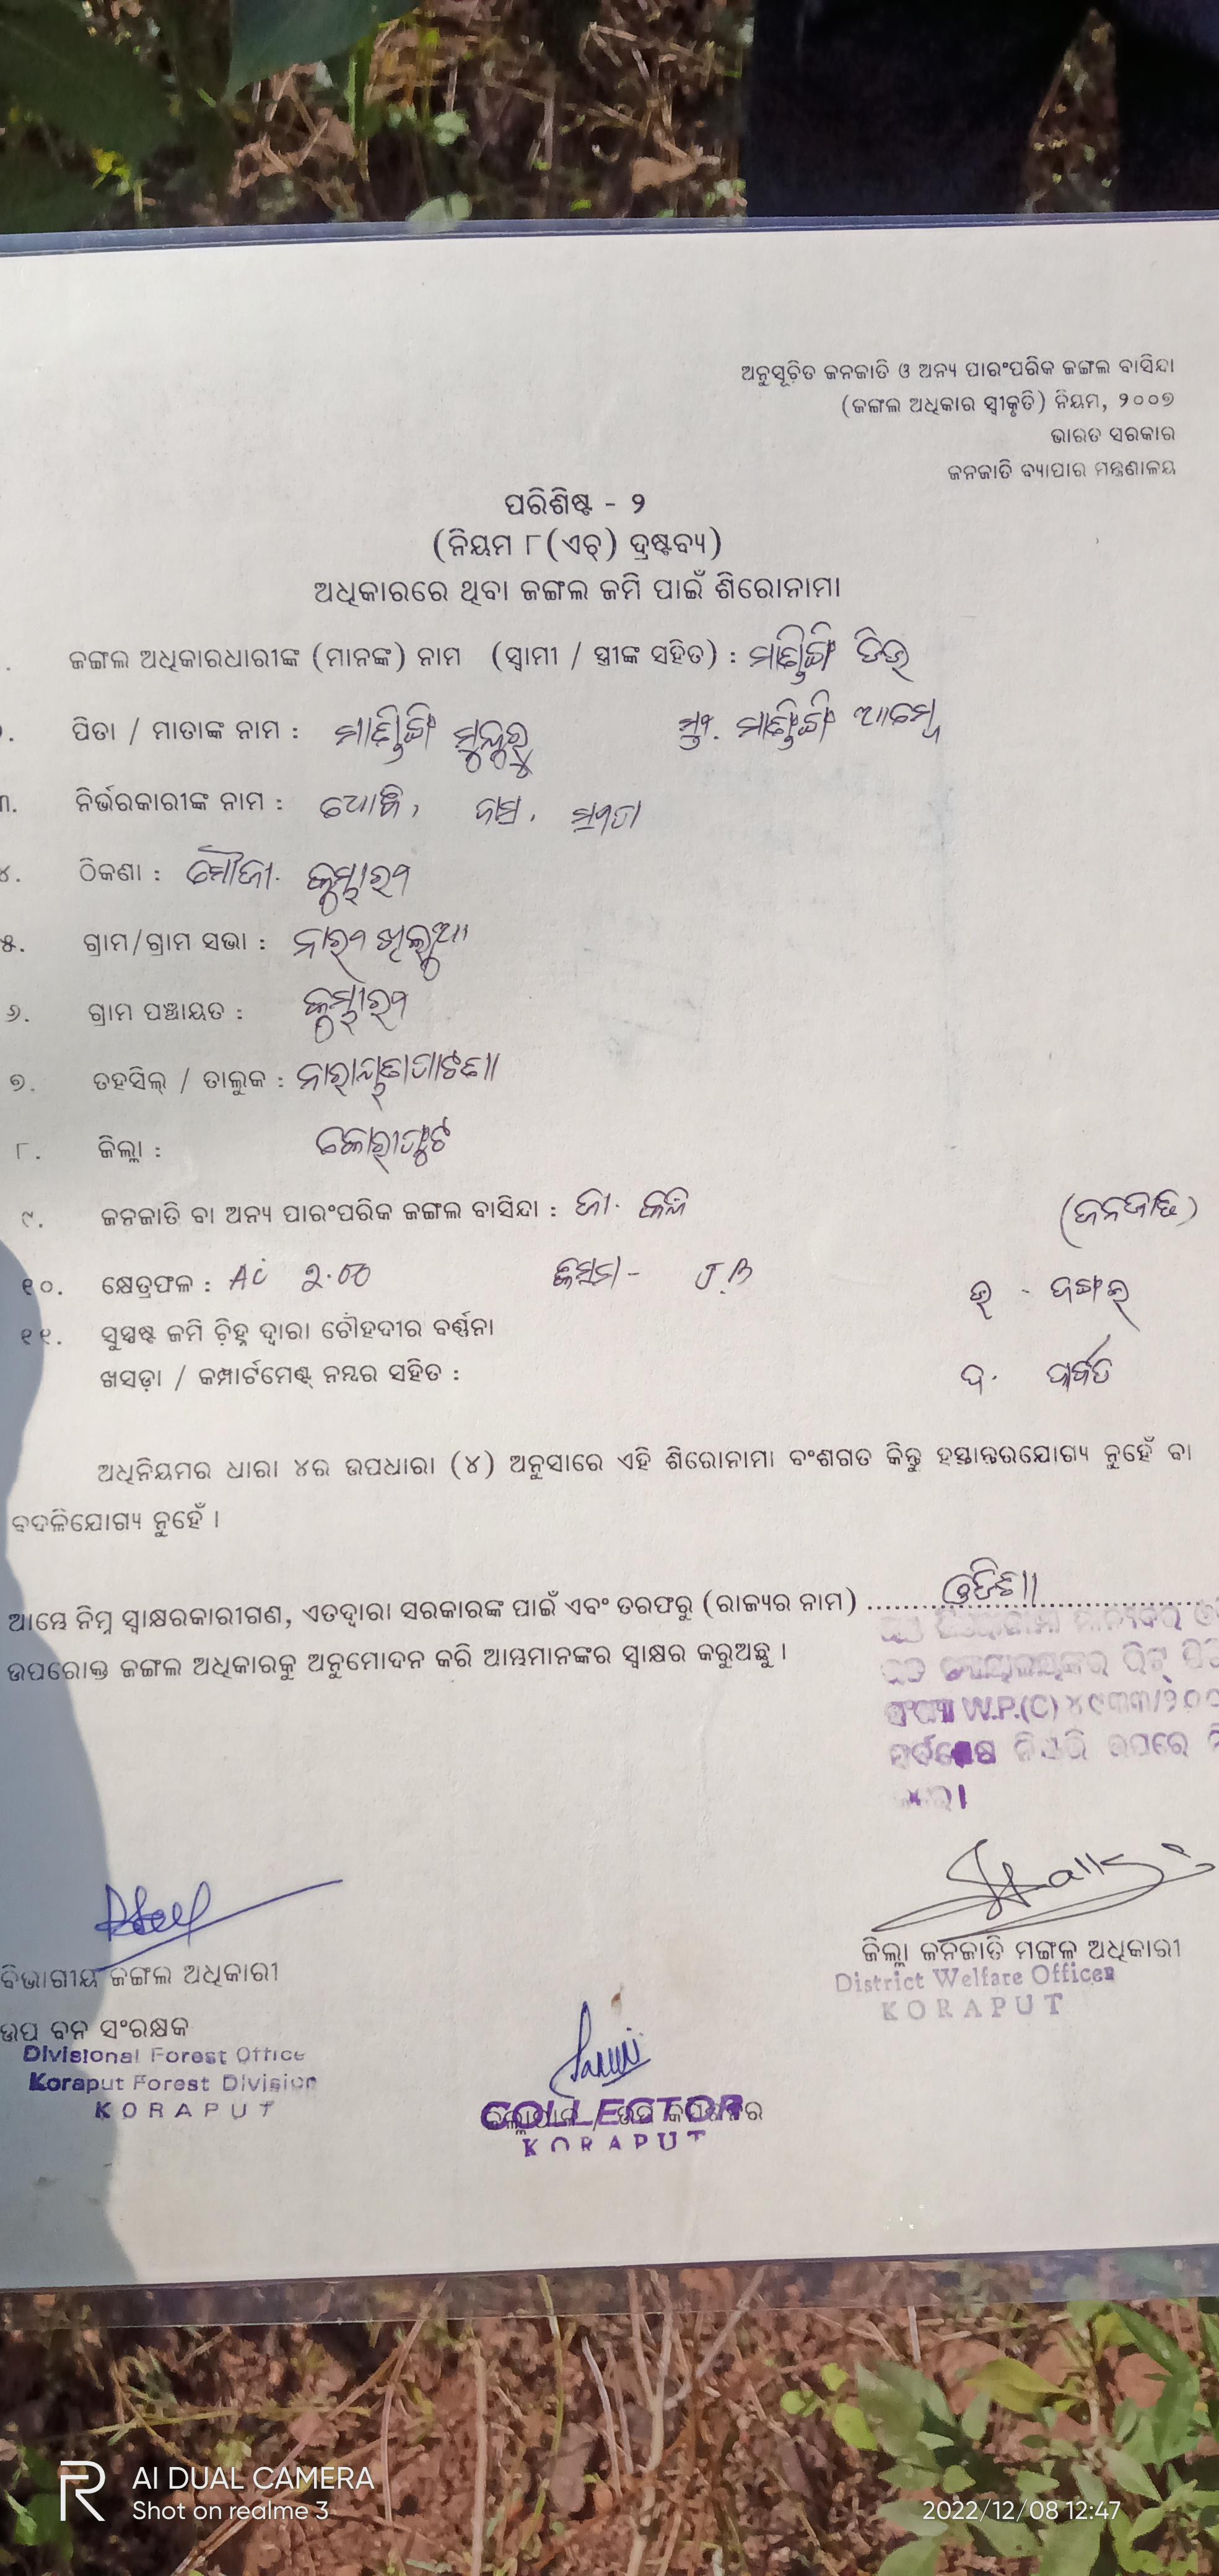 ଅନୁସୂଚିତ ଜନଜାତି ଓ ଅନ୍ୟ ପାରଂପରିକ ଜଙ୍ଗଲ ବାସିନ୍ଦା
(ଜଙ୍ଗଲ ଅଧିକାର ସ୍ୱୀକୃତି) ନିୟମ, ୨୦୦୭
ଭାରତ ସରକାର
ଜନଜାତି ବ୍ୟାପାର ମନ୍ତ୍ରଣାଳୟ
ପରିଶିଷ୍ଟ - ୨
(ନିୟମ ୮(ଏଚ୍) ଦ୍ରଷ୍ଟବ୍ୟ)
ଅଧିକାରରେ ଥିବା ଜଙ୍ଗଲ ଜମି ପାଇଁ ଶିରୋନାମା
ଜଙ୍ଗଲ ଅଧିକାରଧାରୀଙ୍କ (ମାନଙ୍କ) ନାମ (ସ୍ୱାମୀ / ସ୍ତ୍ରୀଙ୍କ ସହିତ) : ମାଣ୍ଡିଙ୍ଗି
ପିତା / ମାତାଙ୍କ ନାମ : ମାଣ୍ଡିଙ୍ଗି ମାଣ୍ଡିଙ୍ଗି
୩. ନିର୍ଭରକାରୀଙ୍କ ନାମ :
୪. ଠିକଣା : ମୌଜା. କୁମ୍ଭାରୀ
୫. ଗ୍ରାମ/ଗ୍ରାମ ସଭା :
୬. ଗ୍ରାମ ପଞ୍ଚାୟତ : କୁମ୍ଭାରୀ
୭. ତହସିଲ୍ / ତାଲୁକ : ନାରାୟଣପାଟଣା
୮. ଜିଲ୍ଲା : କୋରାପୁଟ
୯. ଜନଜାତି ବା ଅନ୍ୟ ପାରଂପରିକ ଜଙ୍ଗଲ ବାସିନ୍ଦା : ଜା. (ଜନଜାତି)
୧୦. କ୍ଷେତ୍ରଫଳ : AC ୨.୦୦ କିସମ -
ଉ - ଜଙ୍ଗଲ
୧୧. ସୁସ୍ପଷ୍ଟ ଜମି ଚିହ୍ନ ଦ୍ୱାରା ଚୌହଦୀର ବର୍ଣ୍ଣନା
ଖସଡ଼ା / କମ୍ପାର୍ଟମେଣ୍ଟ୍ ନମ୍ବର ସହିତ : ଦ. ପର୍ବତ
ଅଧିନିୟମର ଧାରା ୪ର ଉପଧାରା (୪) ଅନୁସାରେ ଏହି ଶିରୋନାମା ବଂଶଗତ କିନ୍ତୁ ହସ୍ତାନ୍ତରଯୋଗ୍ୟ ନୁହେଁ ବା
ବଦଳିଯୋଗ୍ୟ ନୁହେଁ ।
ଆମ୍ଭେ ନିମ୍ନ ସ୍ୱାକ୍ଷରକାରୀଗଣ, ଏତଦ୍ଦ୍ୱାରା ସରକାରଙ୍କ ପାଇଁ ଏବଂ ତରଫରୁ (ରାଜ୍ୟର ନାମ) ଓଡିଶା
ଉପରୋକ୍ତ ଜଙ୍ଗଲ ଅଧିକାରକୁ ଅନୁମୋଦନ କରି ଆମ୍ଭମାନଙ୍କର ସ୍ୱାକ୍ଷର କରୁଅଛୁ ।
ସଂଖ୍ୟା W.P.(C) ୪୯୩୩/୨୦୦
ଉପରେ
ଜିଲ୍ଲା ଜନଜାତି ମଙ୍ଗଳ ଅଧିକାରୀ
District Welfare Officer
KORAPUT
ବିଭାଗୀୟ ଜଙ୍ଗଲ ଅଧିକାରୀ
ଉପ ବନ ସଂରକ୍ଷକ
Divisional Forest Office
Koraput Forest Division
KORAPUT
COLLECTOR
KORAPUT
AI DUAL CAMERA
Shot on realme 3
2022/12/08 12:47